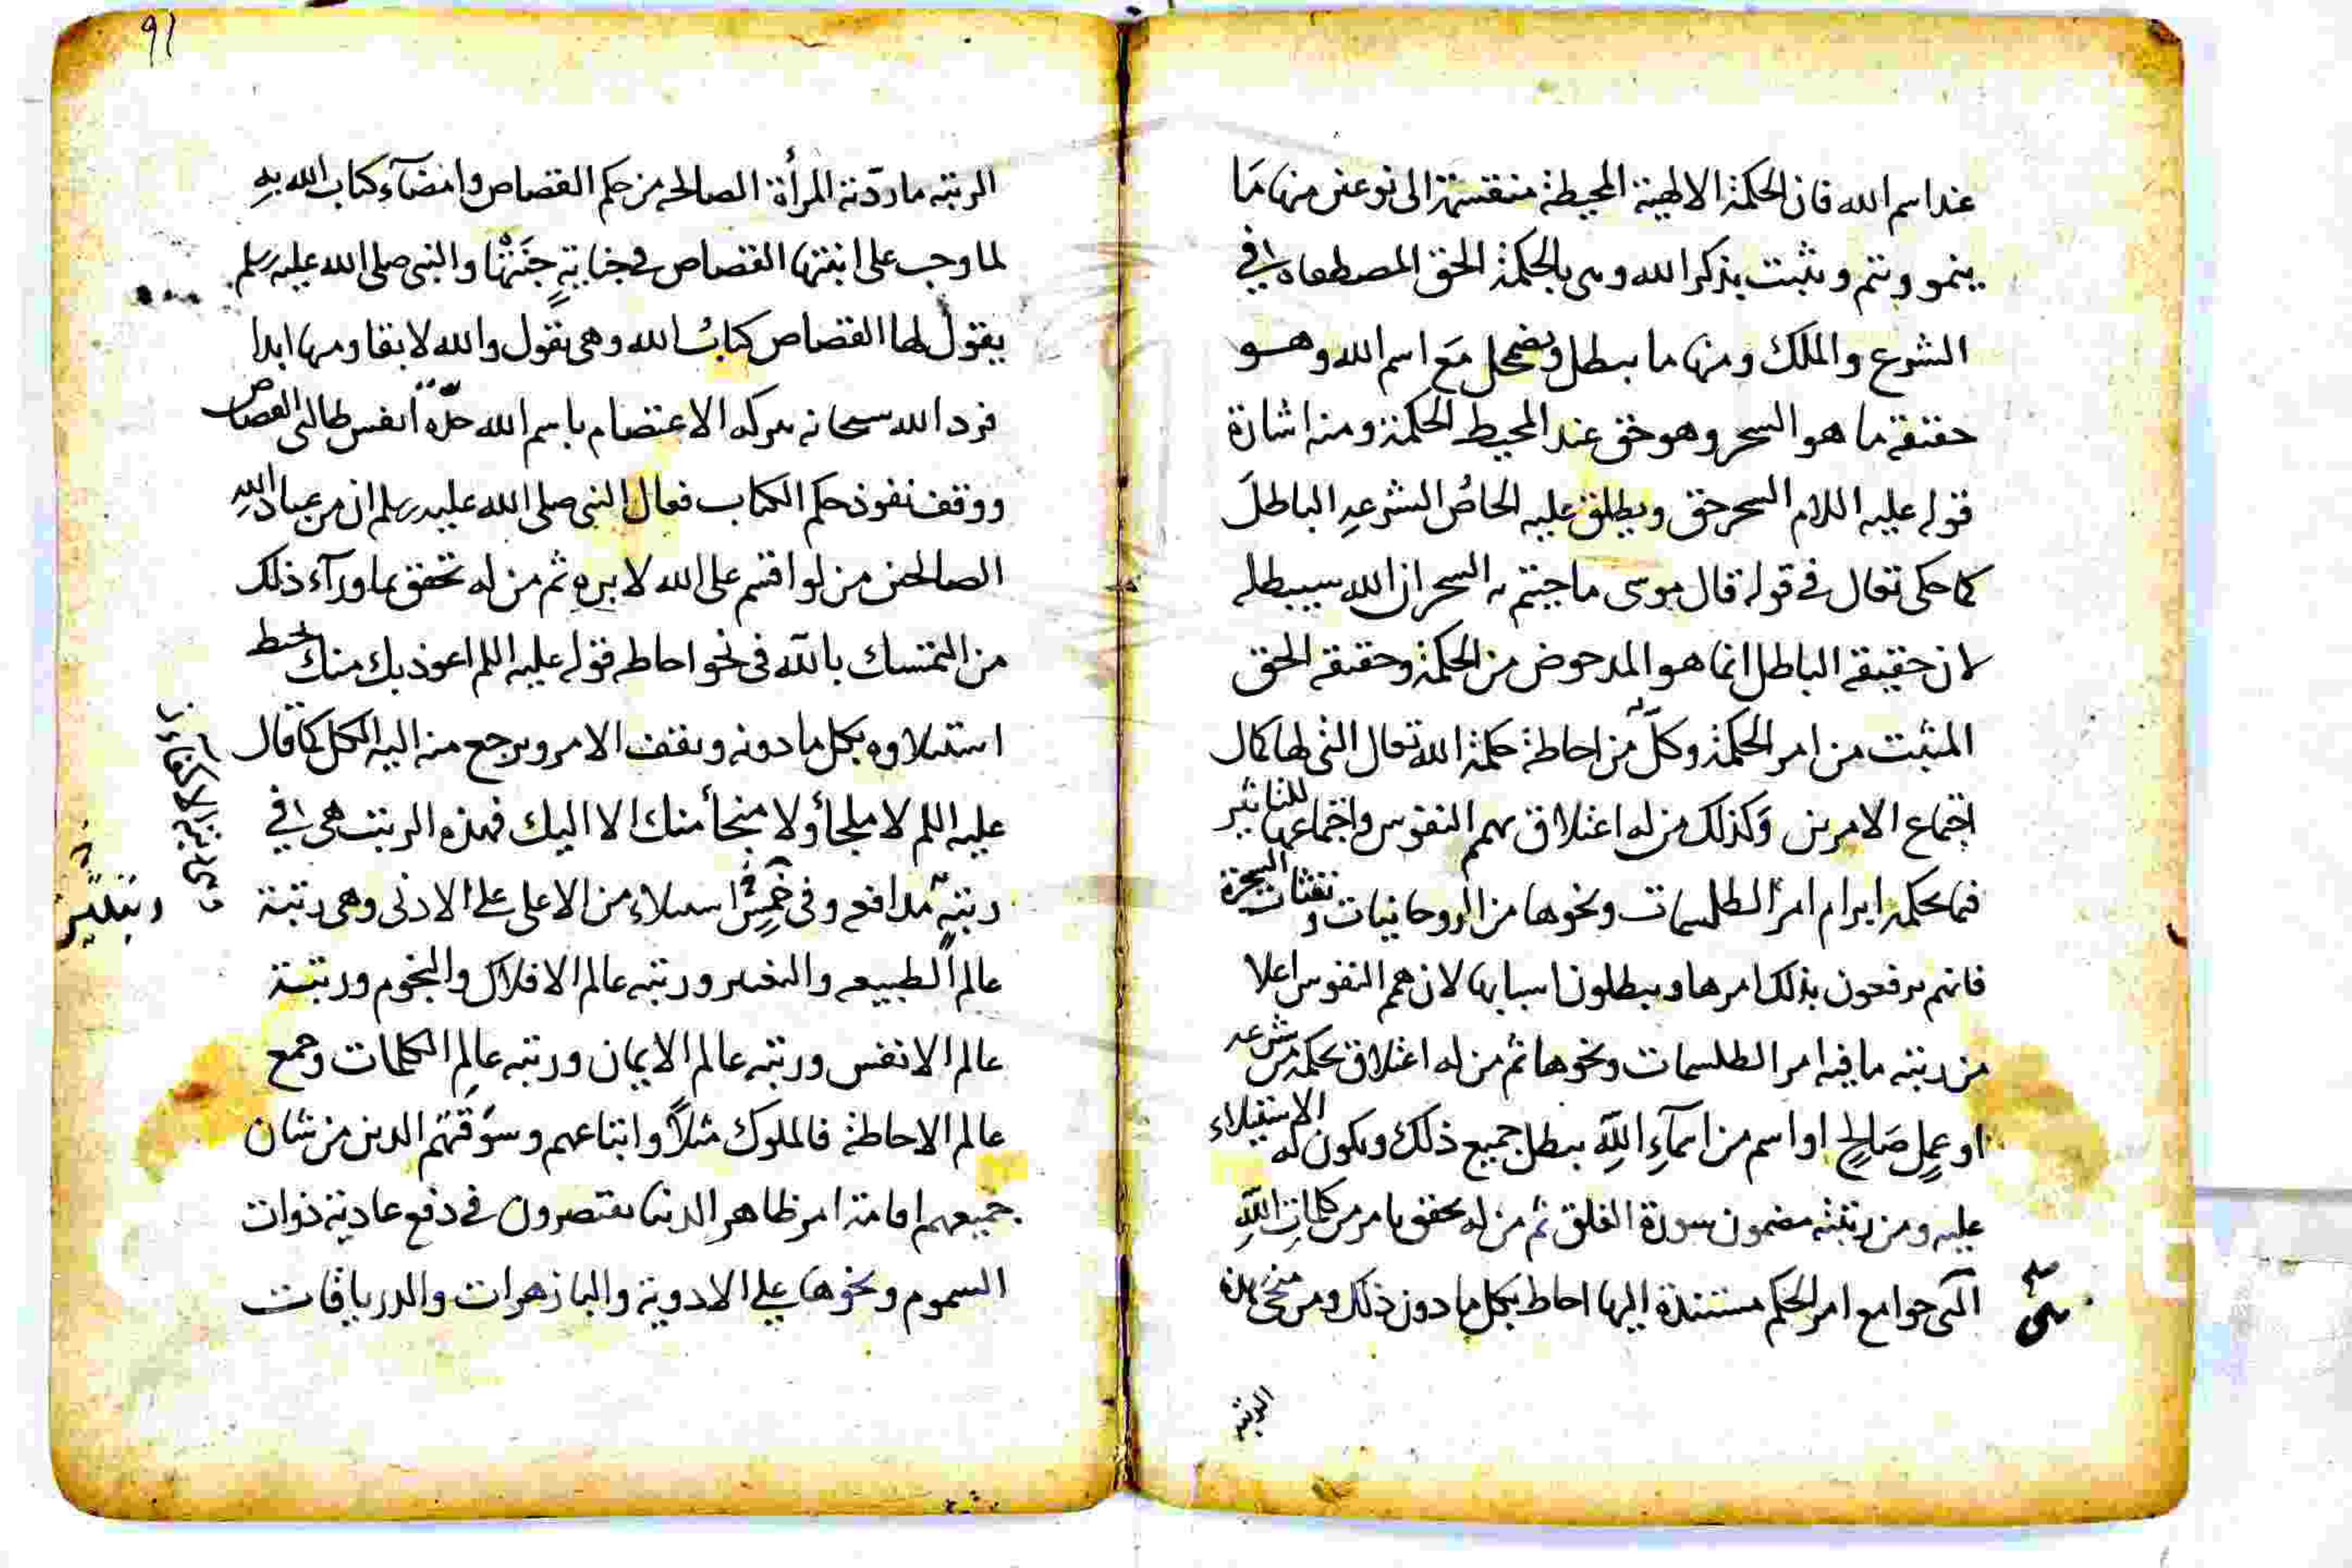 عند اسم الله فان الحكمة الالهية المحيطة منقسمة الى نوعين منها مَا
ينمو ويتم ويثبت بذكر الله وهى بالحكمة الحق المصطفاه في
الشرع والملك ومنها ما يبطل ويضمحل مَع اسم الله وهو
حقيقة ما هو السحر وهو حق عند المحيط الحكمة ومنه اشارة
قوله عليه السلام السحر حق ويطلق عليه الخاصُ الشرعى الباطلَ
كما حكى تعالى في قوله قال موسى ما جئتم به السحر ان الله سيبطله
لان حقيقة الباطل انما هو المدحوض من الحكمة وحقيقة الحق
المثبت من امر الحكمة وكلٌّ من احاطة حكمة الله تعالى التى لها كمال
اجتماع الامرين وَكذلك من له اعتلاق بهمم النفوس واجتماعها للتاثير
فيما يحكمه ابرام امر الطلسمات ونحوها من الروحانيات ونفثات السحرة
فانهم يرفعون بذلك امرها ويبطلون اسبابها لان همم النفوس اعلا
من رتبة ما فيه امر الطلسمات ونحوها ثم من له اعتلاق بحكمة من شرعه
او عملٍ صَالحٍ او اسم من اسمآءِ اللهِ يبطل جميع ذلك ويكون له الاستيلاء
عليه ومن رتبته مضمون سورة الفلق ثم من له تحقق بامر من كلماتِ اللهِ
التى جوامع امر الحكم مستندة اليها احاط بكل ما دون ذلك ومن نحو هذه
الرتبة
٩١
الرتبة ما ردّته المرأة الصالحه من حكم القصاص وامضآء كتاب الله بهِ
لما وجب على ابنتها القصاص في جنايةٍ جنَتْها والنبى صلى الله عليه وسلم
يقول لها القصاص كتابُ الله وهى تقول والله لا يقاد منها ابدا
فرد الله سبحانه ببركه الاعتصام باسم الله حدّة انفس طالبى القصاص
ووقف نفوذ حكم الكتاب فقال النبى صلى الله عليه وسلم ان من عباد اللهِ
الصالحين من لو اقسم على الله لابره ثم من له تحقق بما ورآء ذلك
من التمسك بالله فى نحو احاطه قوله عليه السلم اعوذ بك منك يحيط
استيلاوه بكل ما دونه ويقف الامر ويرجع منه اليه الكل كما قال
عليه السلم لا ملجأ ولا منجأ منك الا اليك فهذه الرتب هى في
رتبةٍ مدافعه وفى استيلاء من الاعلى على الادنى وهى رتبة
عالم الطبيعه ورتبه عالم الافلاك والنجوم ورتبة
عالم الانفس ورتبه عالم الايمان ورتبه عالم الكلمات وجمع
عالم الاحاطة فالملوك مثلاً واتباعهم وسوقتهم الذين من شان
جميعهم اقامة امر ظاهر الدنيا يقتصرون في دفع عادية ذوات
السموم ونحوها على الادوية والبازهرات والدرياقات